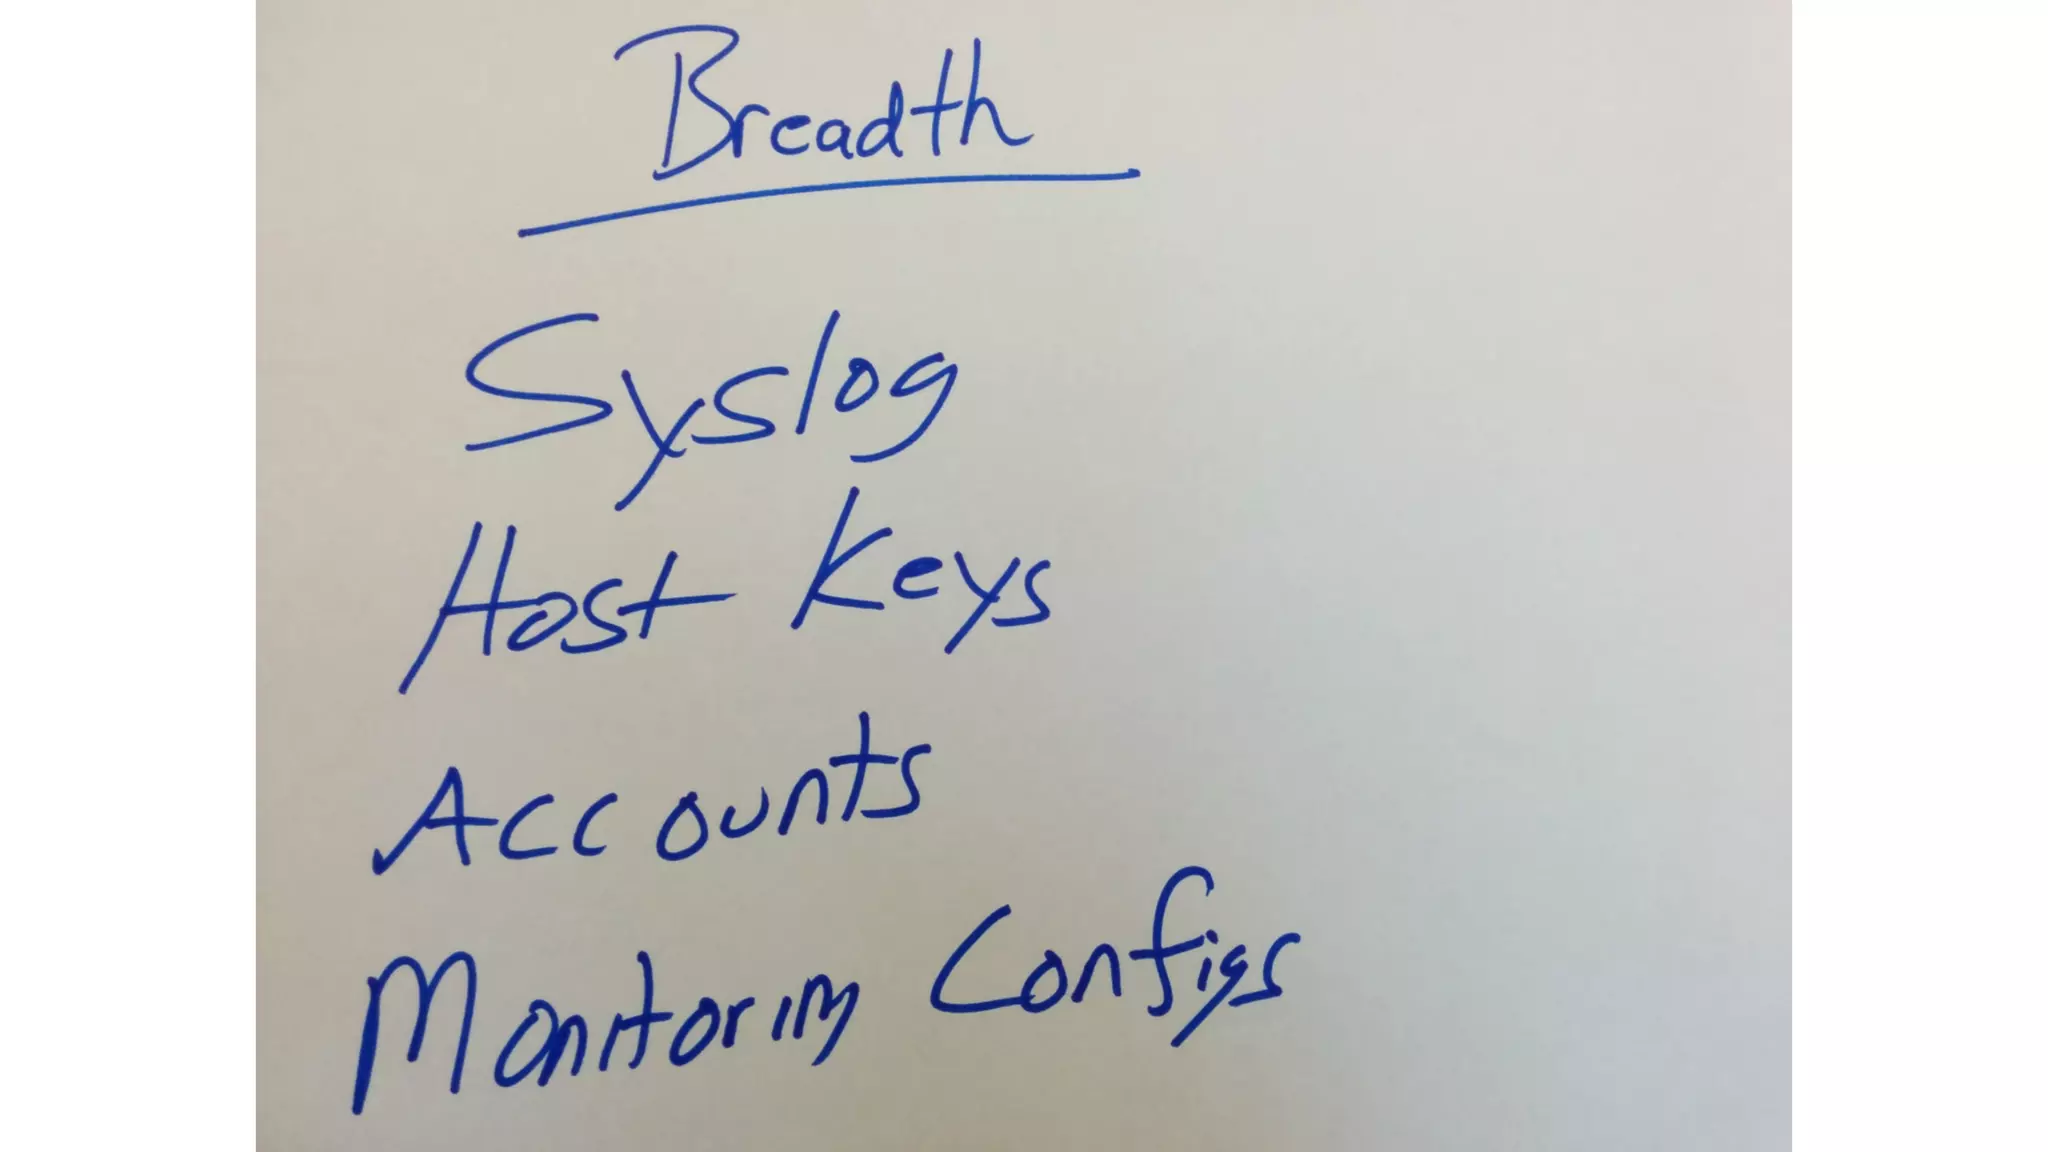 Breadth
Syslog
Host Keys
Accounts
Monitoring Configs